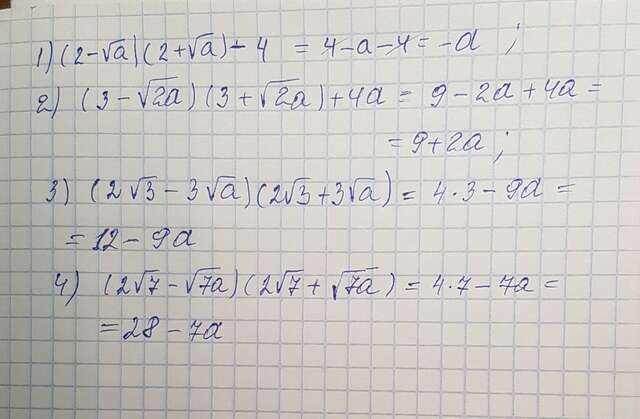 1) (2-√a)(2+√a)-4 = 4-a-4 = -a ;
2) (3-√2a)(3+√2a)+4a = 9-2a+4a =
= 9+2a ;
3) (2√3-3√a)(2√3+3√a) = 4·3-9a =
= 12-9a
4) (2√7-√7a)(2√7+√7a) = 4·7-7a =
= 28-7a